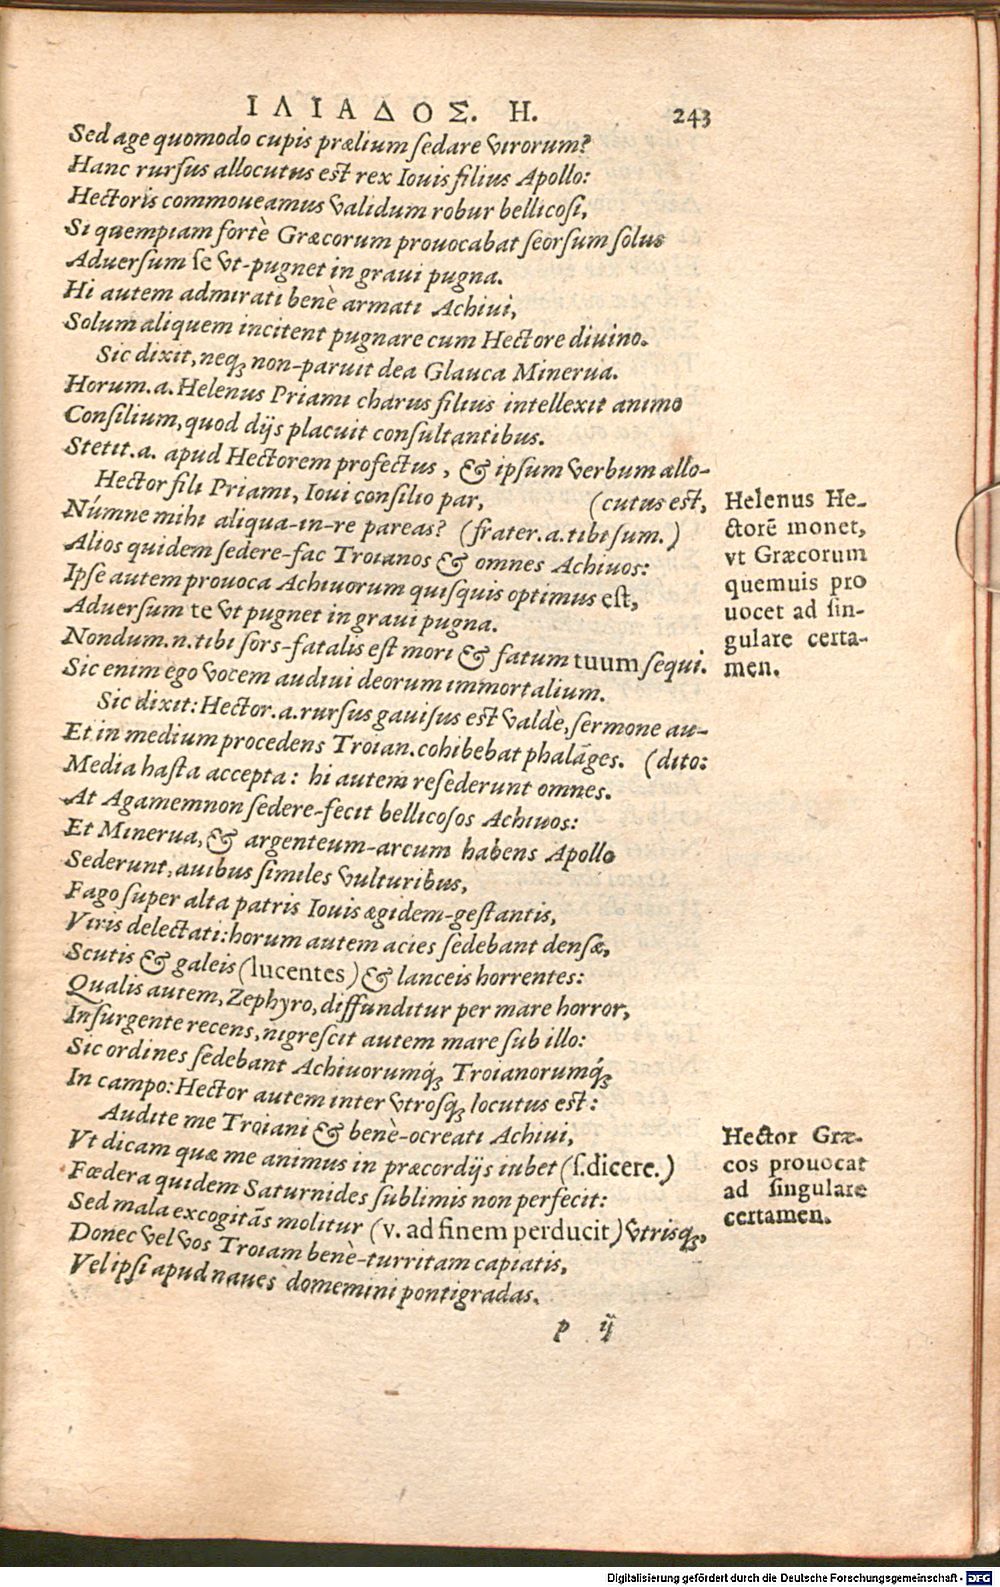 ΙΛΙΑΔΟΣ. Η. 243
Sed age quomodo cupis prælium sedare virorum?
Hanc rursus allocutus est rex Iouis filius Apollo:
Hectoris commoueamus validum robur bellicosi,
Si quempiam fortè Græcorum prouocabat seorsum solus
Aduersum se vt-pugnet in graui pugna.
Hi autem admirati benè armati Achiui,
Solum aliquem incitent pugnare cum Hectore diuino.
Sic dixit, neq; non-paruit dea Glauca Minerua.
Horum.a. Helenus Priami charus filius intellexit animo
Consilium, quod dijs placuit consultantibus.
Stetit.a. apud Hectorem profectus, & ipsum verbum allo-
Hector fili Priami, Ioui consilio par, (cutus est,
Númne mihi aliqua-in-re pareas? (frater.a.tibi sum.)
Alios quidem sedere-fac Troianos & omnes Achiuos:
Ipse autem prouoca Achiuorum quisquis optimus est,
Aduersum te vt pugnet in graui pugna.
Nondum.n.tibi sors-fatalis est mori & fatum tuum sequi.
Sic enim ego vocem audiui deorum immortalium.
Sic dixit: Hector.a.rursus gauisus est valdè, sermone au-
Et in medium procedens Troian.cohibebat phalāges. (dito:
Media hasta accepta: hi autem resederunt omnes.
At Agamemnon sedere-fecit bellicosos Achiuos:
Et Minerua, & argenteum-arcum habens Apollo
Sederunt, auibus similes vulturibus,
Fago super alta patris Iouis ægidem-gestantis,
Viris delectati: horum autem acies sedebant densæ,
Scutis & galeis (lucentes) & lanceis horrentes:
Qualis autem, Zephyro, diffunditur per mare horror,
Insurgente recens, nigrescit autem mare sub illo:
Sic ordines sedebant Achiuorumq́; Troianorumq́;
In campo: Hector autem inter vtrosq; locutus est:
Audite me Troiani & benè-ocreati Achiui,
Vt dicam quæ me animus in præcordijs iubet (s.dicere.)
Fœdera quidem Saturnides sublimis non perfecit:
Sed mala excogitās molitur (v. ad finem perducit) vtrisq;,
Donec vel vos Troiam benè-turritam capiatis,
Vel ipsi apud naues domemini pontigradas.
p ij
Helenus He-
ctorē monet,
vt Græcorum
quemuis pro
uocet ad sin-
gulare certa-
men.
Hector Græ-
cos prouocat
ad singulare
certamen.
Digitalisierung gefördert durch die Deutsche Forschungsgemeinschaft - DFG